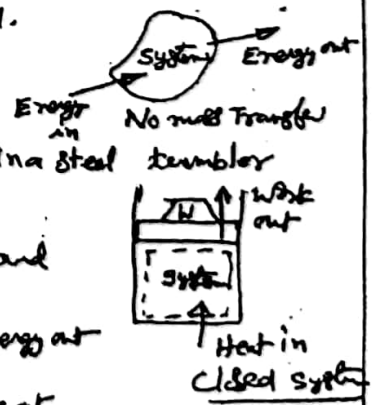 1.
System
Energy out
Energy
in
No mass Transfer
in a steel tumbler
W
Work
out
and
System
ergy out
Heat in
Closed System